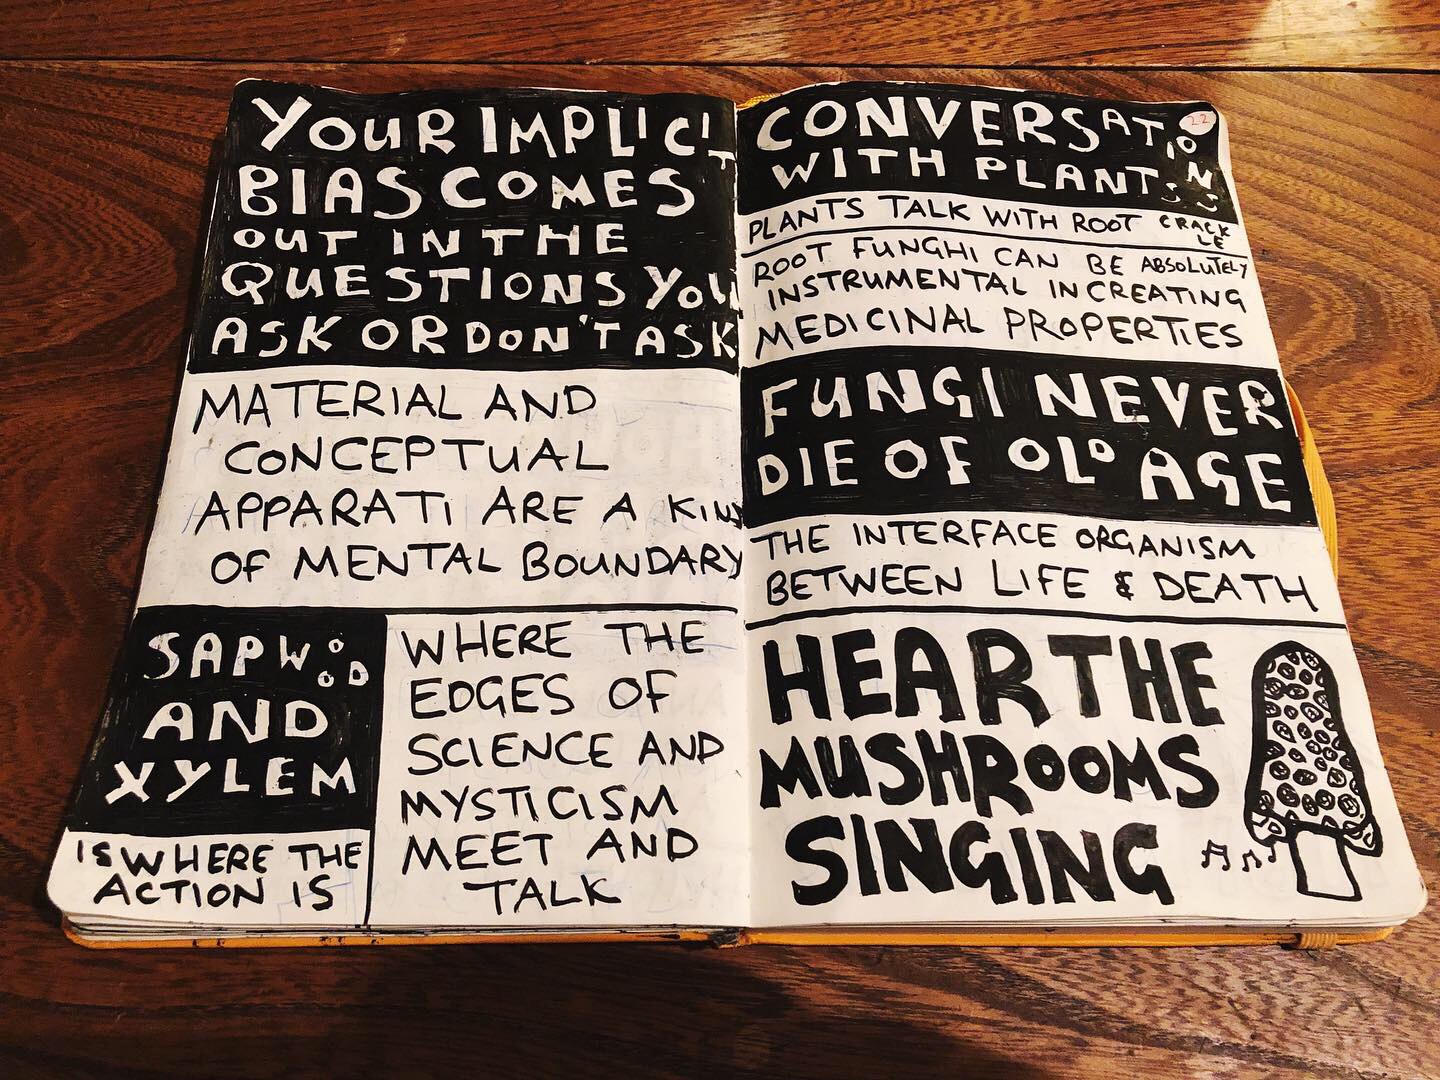 YOUR IMPLICIT
BIAS COMES
OUT IN THE
QUESTIONS YOU
ASK OR DON'T ASK
MATERIAL AND
CONCEPTUAL
APPARATI ARE A KIND
OF MENTAL BOUNDARY
SAPWOOD
AND
XYLEM
IS WHERE THE
ACTION IS
WHERE THE
EDGES OF
SCIENCE AND
MYSTICISM
MEET AND
TALK
22
CONVERSATIONS
WITH PLANTS
PLANTS TALK WITH ROOT CRACKLE
ROOT FUNGHI CAN BE ABSOLUTELY
INSTRUMENTAL IN CREATING
MEDICINAL PROPERTIES
FUNGI NEVER
DIE OF OLD AGE
THE INTERFACE ORGANISM
BETWEEN LIFE & DEATH
HEAR THE
MUSHROOMS
SINGING